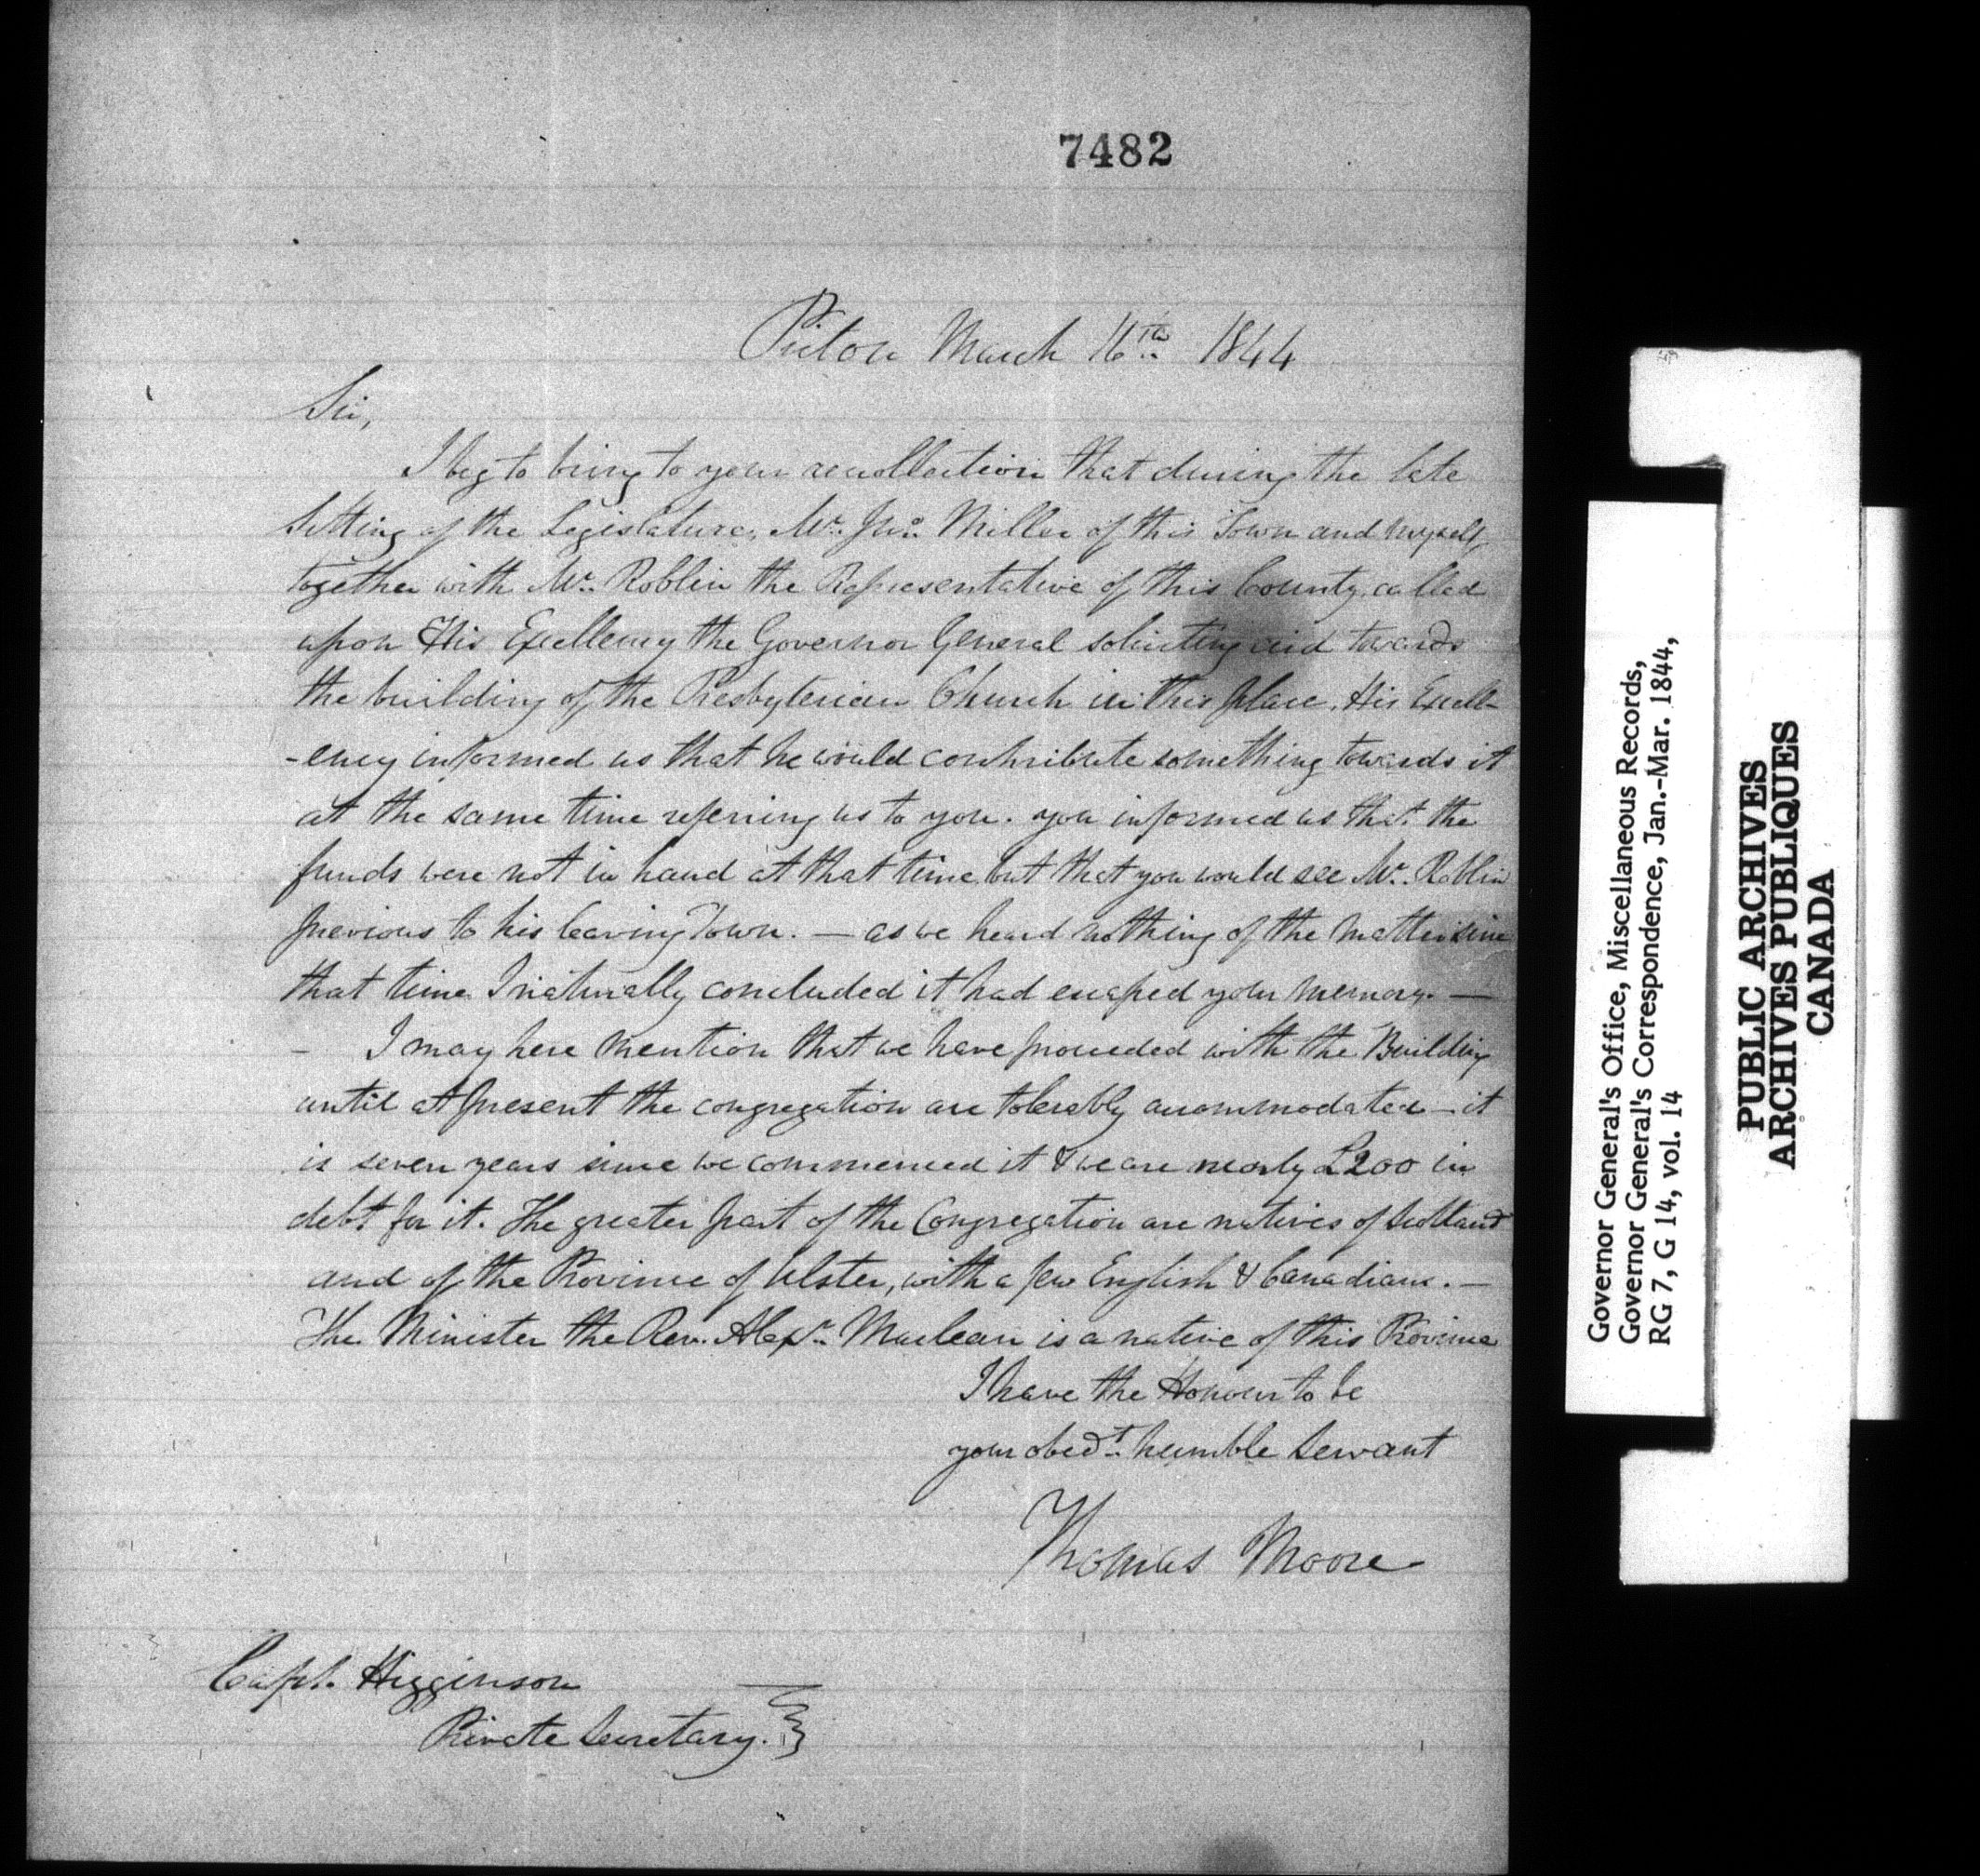 7482
Picton March 16th 1844
Sir,
I beg to bring to your recollection that during the late
Sitting of the Legislature, Mr. Jno. Miller of this Town and myself,
together with Mr. Roblin the Representative of this County called
upon His Excellency the Governor General soliciting aid towards
the building of the Presbyterian Church in this place. His Excell-
-ency informed us that he would contribute something towards it
at the same time referring us to you. you informed us that the
funds were not in hand at that time but that you would see Mr. Roblin
previous to his leaving Town. — as we heard nothing of the matter since
that time I naturally concluded it had escaped your memory. —
- I may here mention that we have proceeded with the Building
until at present the congregation are tolerably accommodated — it
is seven years since we commenced it & we are nearly £200 in
debt for it. The greater part of the Congregation are natives of Scotland
and of the Province of Ulster, with a few English & Canadians. —
The Minister the Rev. Alexr. Maclean is a native of this Province
I have the Honour to be
your obedt. humble Servant
Thomas Moore
Capt. Higginson
Private Secretary.
Governor General's Office, Miscellaneous Records,
Governor General's Correspondence, Jan.-Mar. 1844,
RG 7, G 14, vol. 14
PUBLIC ARCHIVES
ARCHIVES PUBLIQUES
CANADA